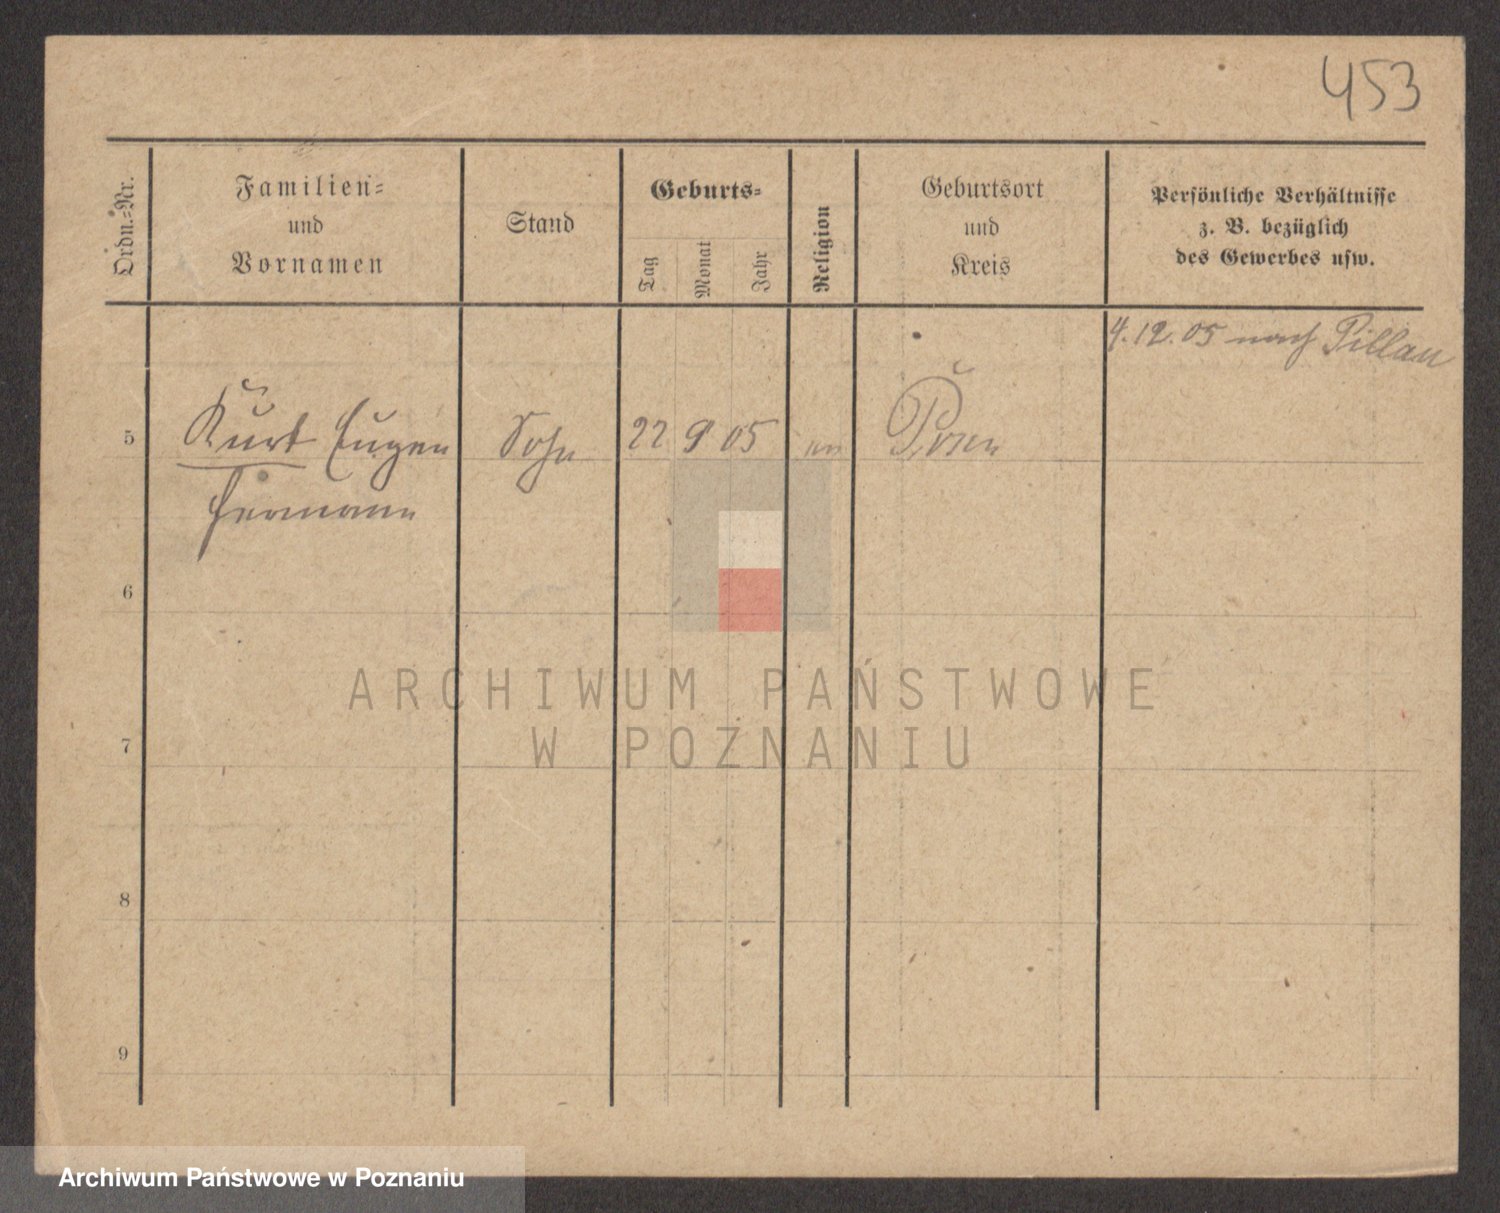 453
Ordn.-Nr.
Familien-
und
Vornamen
Stand
Geburts-
Tag
Monat
Jahr
Religion
Geburtsort
und
Kreis
Persönliche Verhältnisse
z. B. bezüglich
des Gewerbes usw.
4.12.05 nach Pillau
5 Kurt Eugen Sohn 22 9 05 Posen
Hermann
6
7
8
9
ARCHIWUM PAŃSTWOWE
W POZNANIU
Archiwum Państwowe w Poznaniu